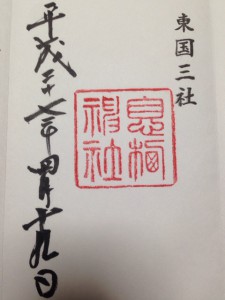 東国三社
息栖
神社
平成二十七年四月十九日